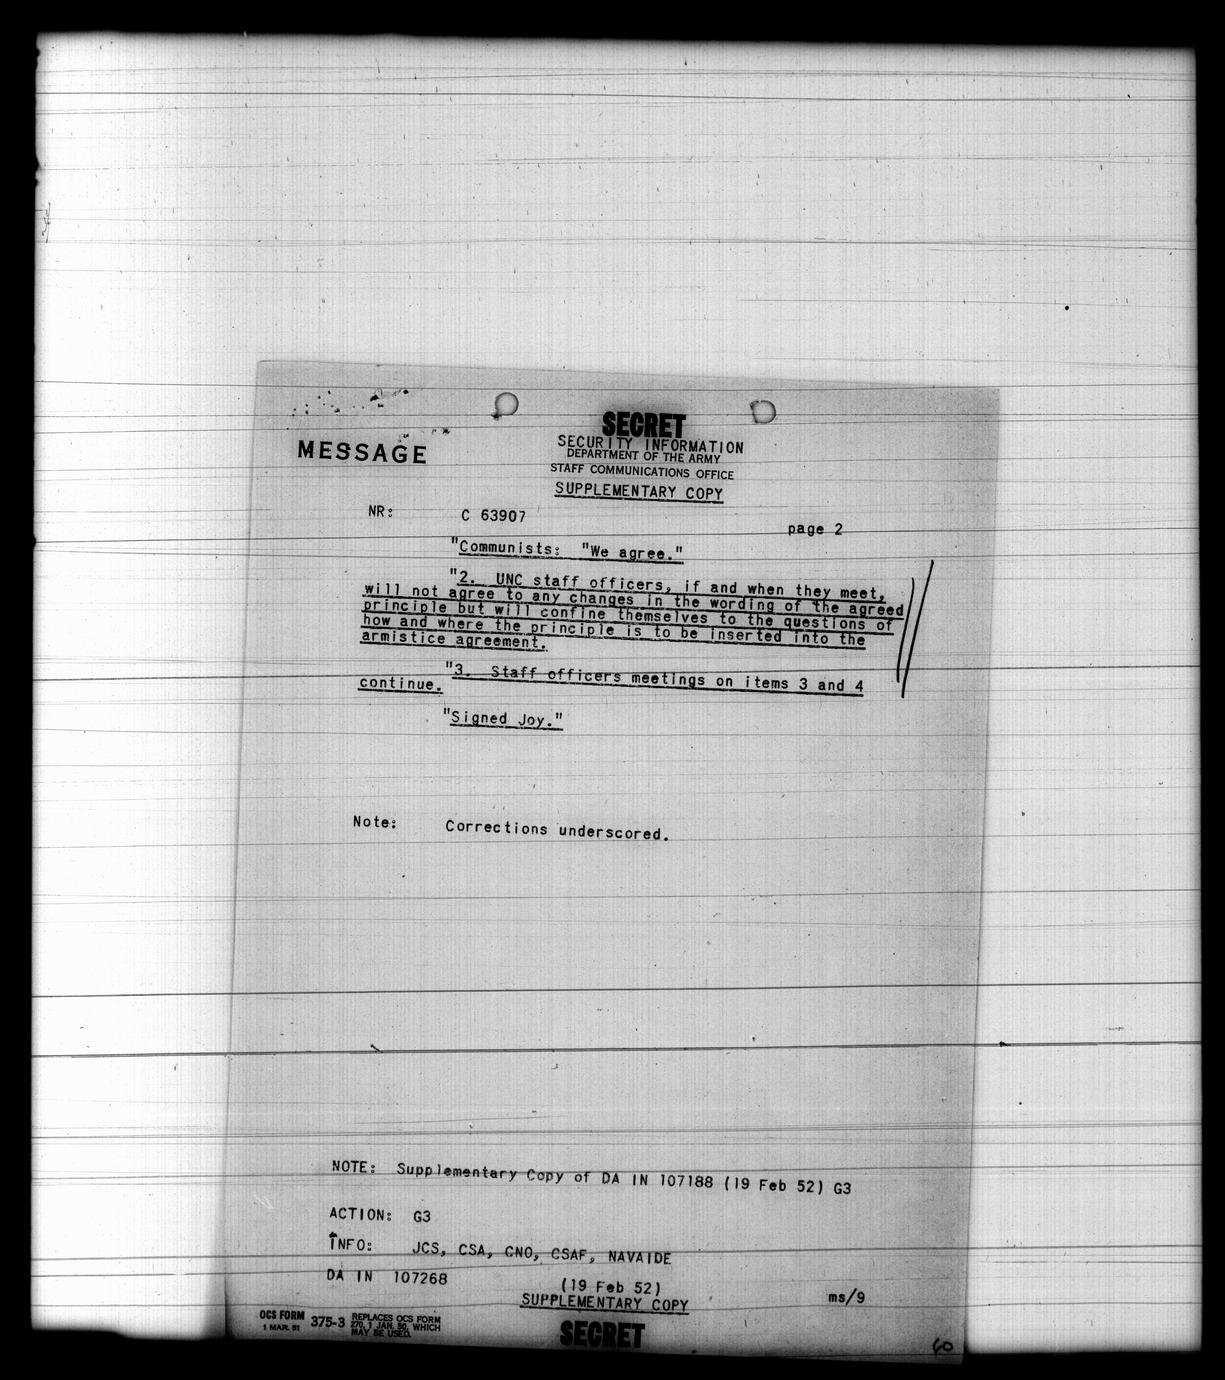 SECRET
SECURITY INFORMATION
MESSAGE
DEPARTMENT OF THE ARMY
STAFF COMMUNICATIONS OFFICE
SUPPLEMENTARY COPY
NR: C 63907
page 2
"Communists: "We agree."
"2. UNC staff officers, if and when they meet,
will not agree to any changes in the wording of the agreed
principle but will confine themselves to the questions of
how and where the principle is to be inserted into the
armistice agreement.
"3. Staff officers meetings on items 3 and 4
continue.
"Signed Joy."
Note: Corrections underscored.
NOTE: Supplementary Copy of DA IN 107188 (19 Feb 52) G3
ACTION: G3
INFO: JCS, CSA, CNO, CSAF, NAVAIDE
DA IN 107268 (19 Feb 52)
SUPPLEMENTARY COPY
ms/9
OCS FORM 375-3 REPLACES OCS FORM
1 MAR. 51 270, 1 JAN. 50, WHICH
MAY BE USED.
SECRET
60